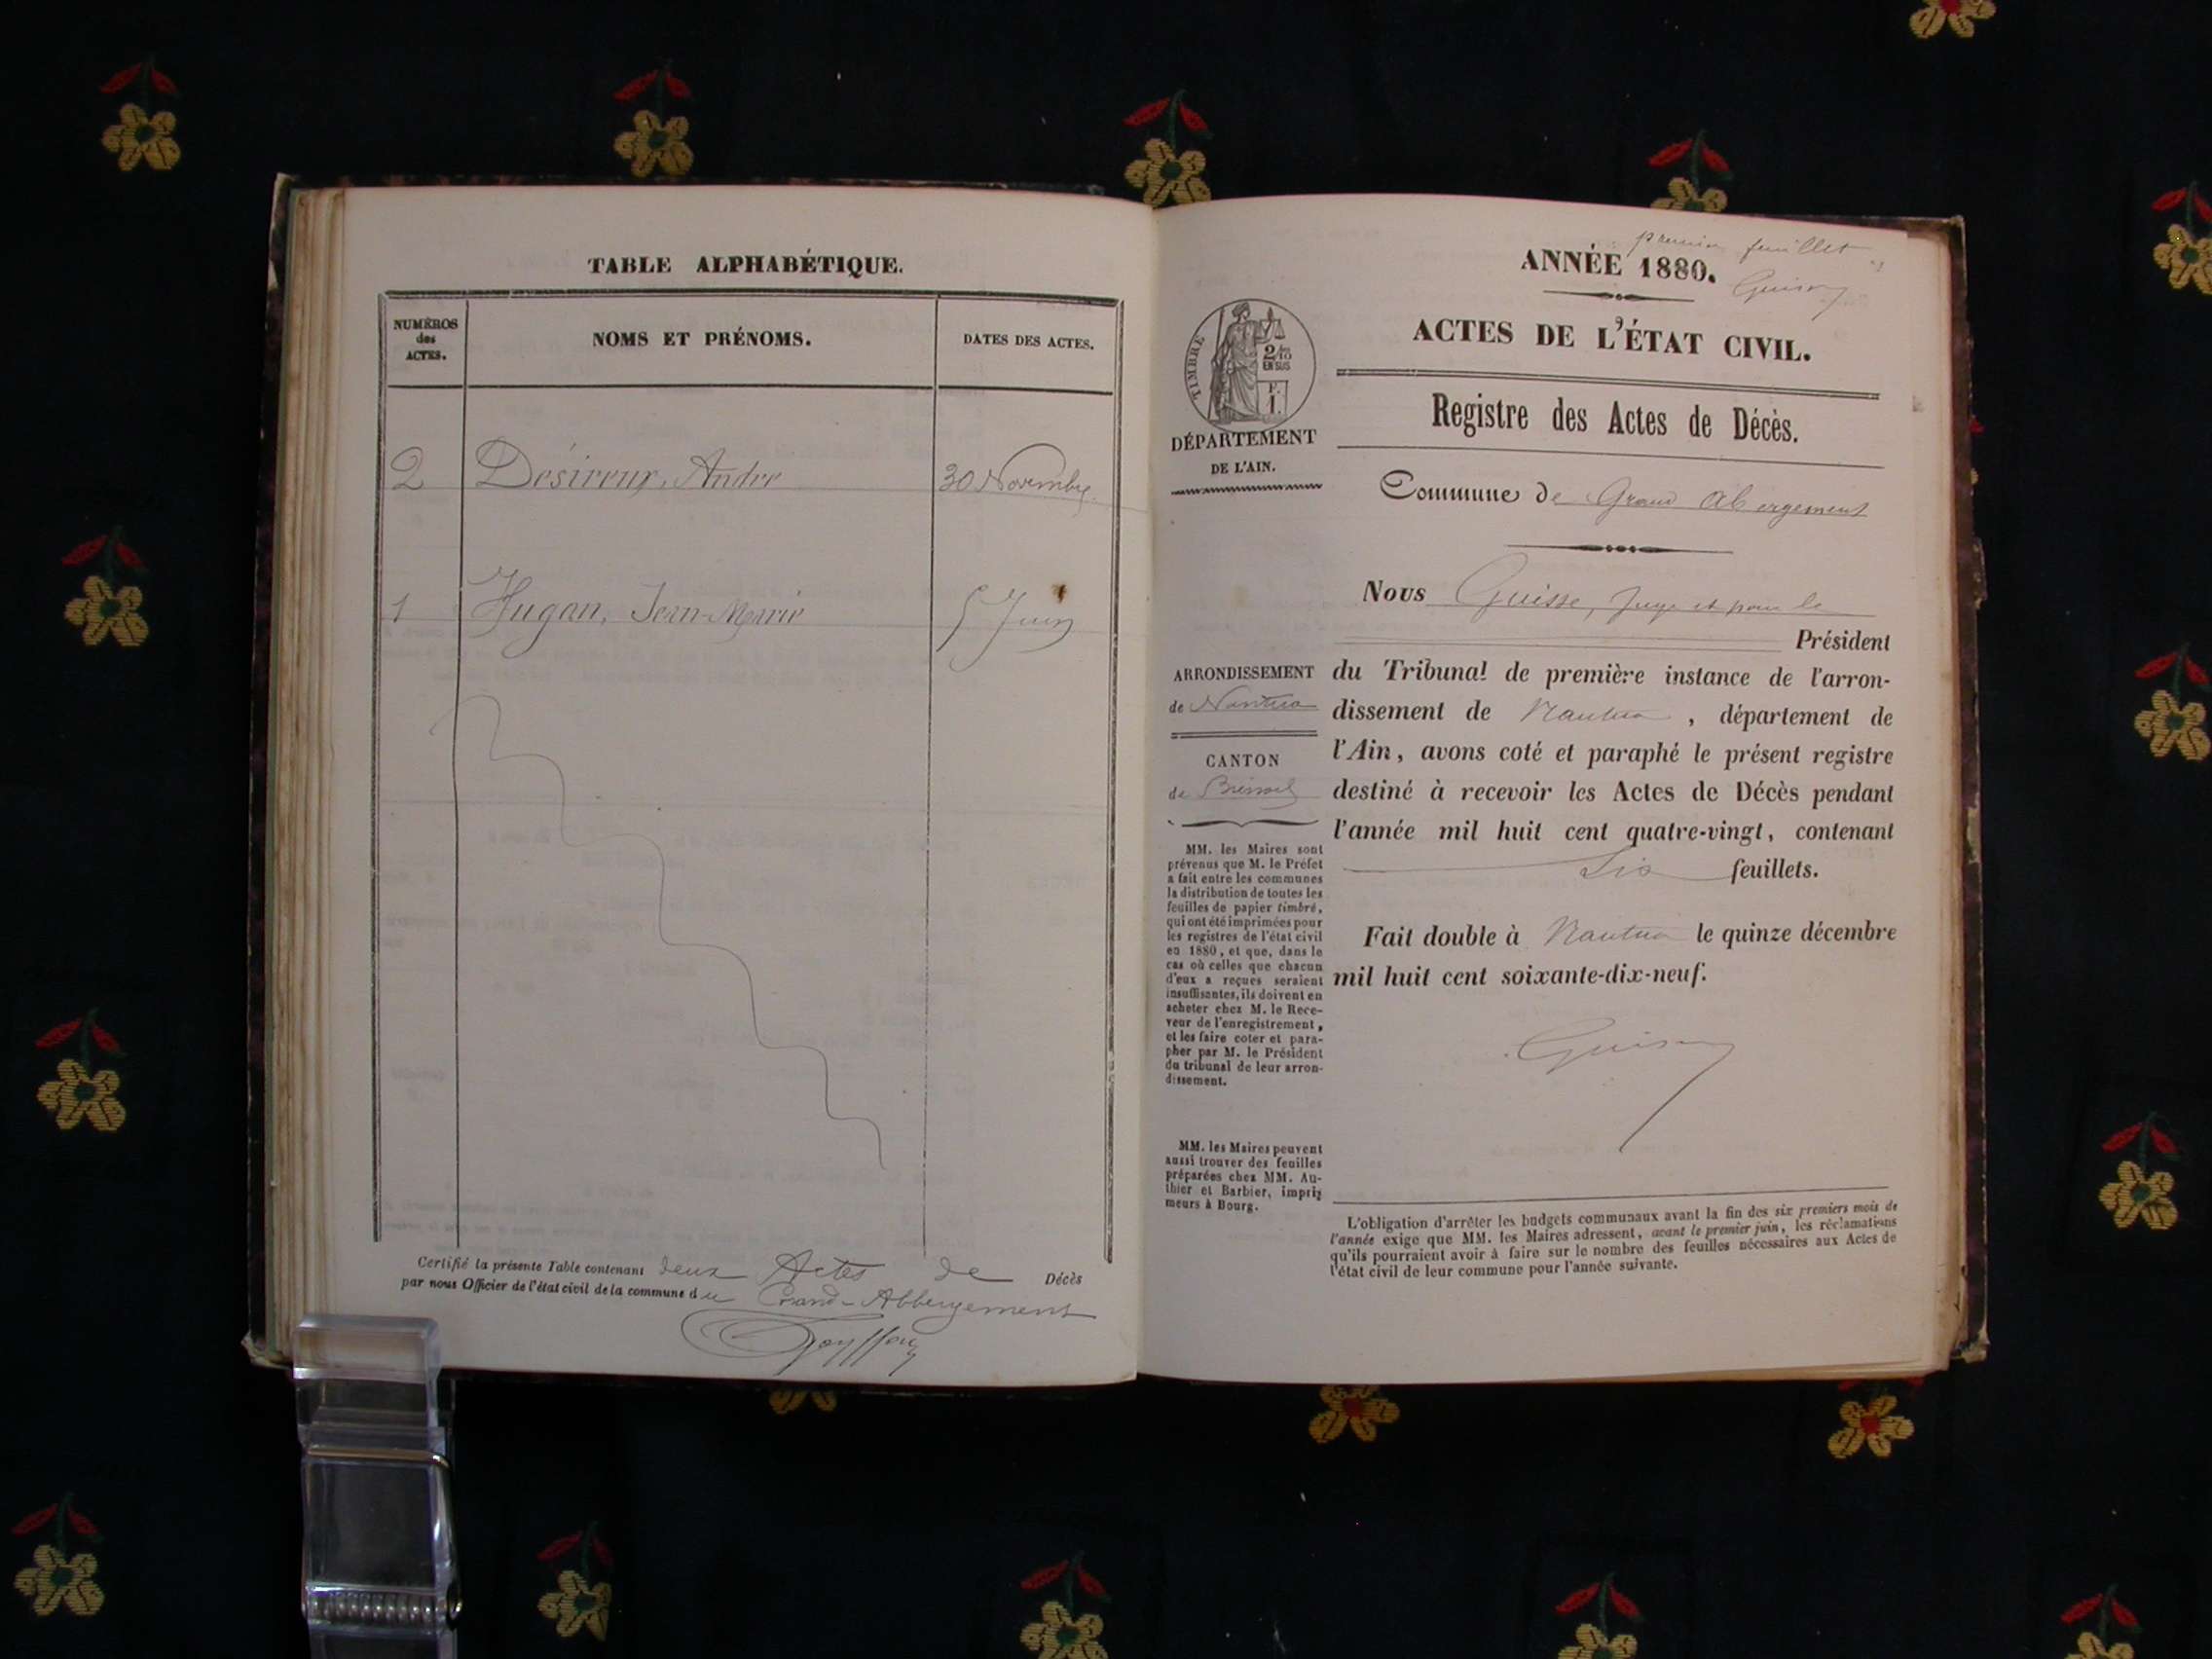 TABLE ALPHABÉTIQUE.
NUMÉROS
des
ACTES.
NOMS ET PRÉNOMS.
DATES DES ACTES.
2 Désireux, André 30 Novembre
1 Hugon, Jean-Marie 5 Juin
Certifié la présente Table contenant deux Actes de Décès
par nous Officier de l'état civil de la commune du Grand-Abbergement
premier feuillet
ANNÉE 1880.
ACTES DE L'ÉTAT CIVIL.
Registre des Actes de Décès.
TIMBRE
2/10
EN SUS
F.
1.
DÉPARTEMENT
DE L'AIN.
Commune de Grand Abergement
Nous Guisse, Juge et pour le
Président
du Tribunal de première instance de l'arron-
dissement de Nantua, département de
l'Ain, avons coté et paraphé le présent registre
destiné à recevoir les Actes de Décès pendant
l'année mil huit cent quatre-vingt, contenant
Six feuillets.
Fait double à Nantua le quinze décembre
mil huit cent soixante-dix-neuf.
ARRONDISSEMENT
de Nantua
CANTON
de
MM. les Maires sont
prévenus que M. le Préfet
a fait entre les communes
la distribution de toutes les
feuilles de papier timbré,
qui ont été imprimées pour
les registres de l'état civil
en 1880, et que, dans le
cas où celles que chacun
d'eux a reçues seraient
insuffisantes, ils doivent en
acheter chez M. le Rece-
veur de l'enregistrement,
et les faire coter et para-
pher par M. le Président
du tribunal de leur arron-
dissement.
MM. les Maires peuvent
aussi trouver des feuilles
préparées chez MM. Au-
thier et Barbier, impri-
meurs à Bourg.
L'obligation d'arrêter les budgets communaux avant la fin des six premiers mois de
l'année exige que MM. les Maires adressent, avant le premier juin, les réclamations
qu'ils pourraient avoir à faire sur le nombre des feuilles nécessaires aux Actes de
l'état civil de leur commune pour l'année suivante.